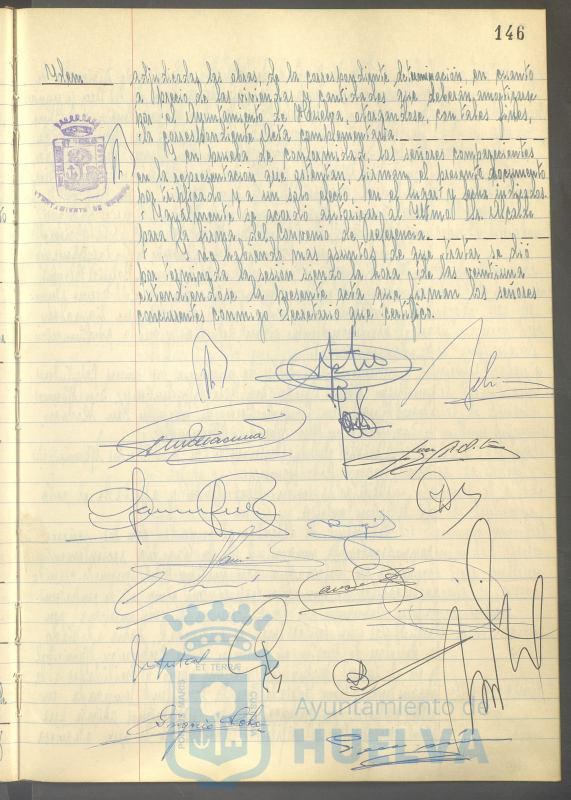 146
Idem
adjudicadas las obras, de la correspondiente determinación, en cuanto
a precio de las viviendas y cantidades que deberán amortizarse
por el Ayuntamiento de Huelva, otorgándose, con tales fines,
la correspondiente Acta complementaria.
Y en prueba de conformidad, los señores comparecientes
en la representación que ostentan firman el presente documento
por triplicado y a un solo efecto en el lugar y fecha indicados.
Igualmente se acordó autorizar al Iltmo. Sr. Alcalde
para la firma del Convenio de referencia.
Y no habiendo más asuntos de que tratar se dió
por terminada la sesión siendo la hora de las veintiuna
extendiéndose la presente acta que firman los señores
concurrentes conmigo Secretario que certifico.
AYUNTAMIENTO DE
ET TERRAE
Ayuntamiento de
HUELVA